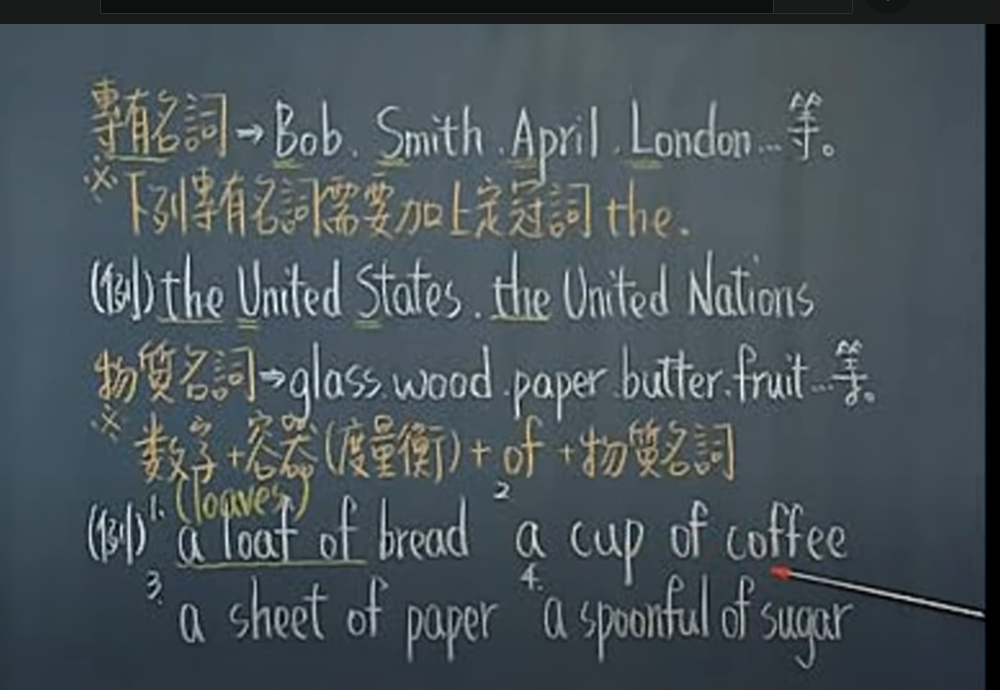 專有名詞→Bob、Smith、April、London…等。
※下列專有名詞需要加上定冠詞 the.
(例) the United States、the United Nations
物質名詞→glass、wood、paper、butter、fruit…等。
※數字+容器(度量衡)+of+物質名詞
(loaves)
(例) 1. a loaf of bread 2 a cup of coffee
3. a sheet of paper 4. a spoonful of sugar